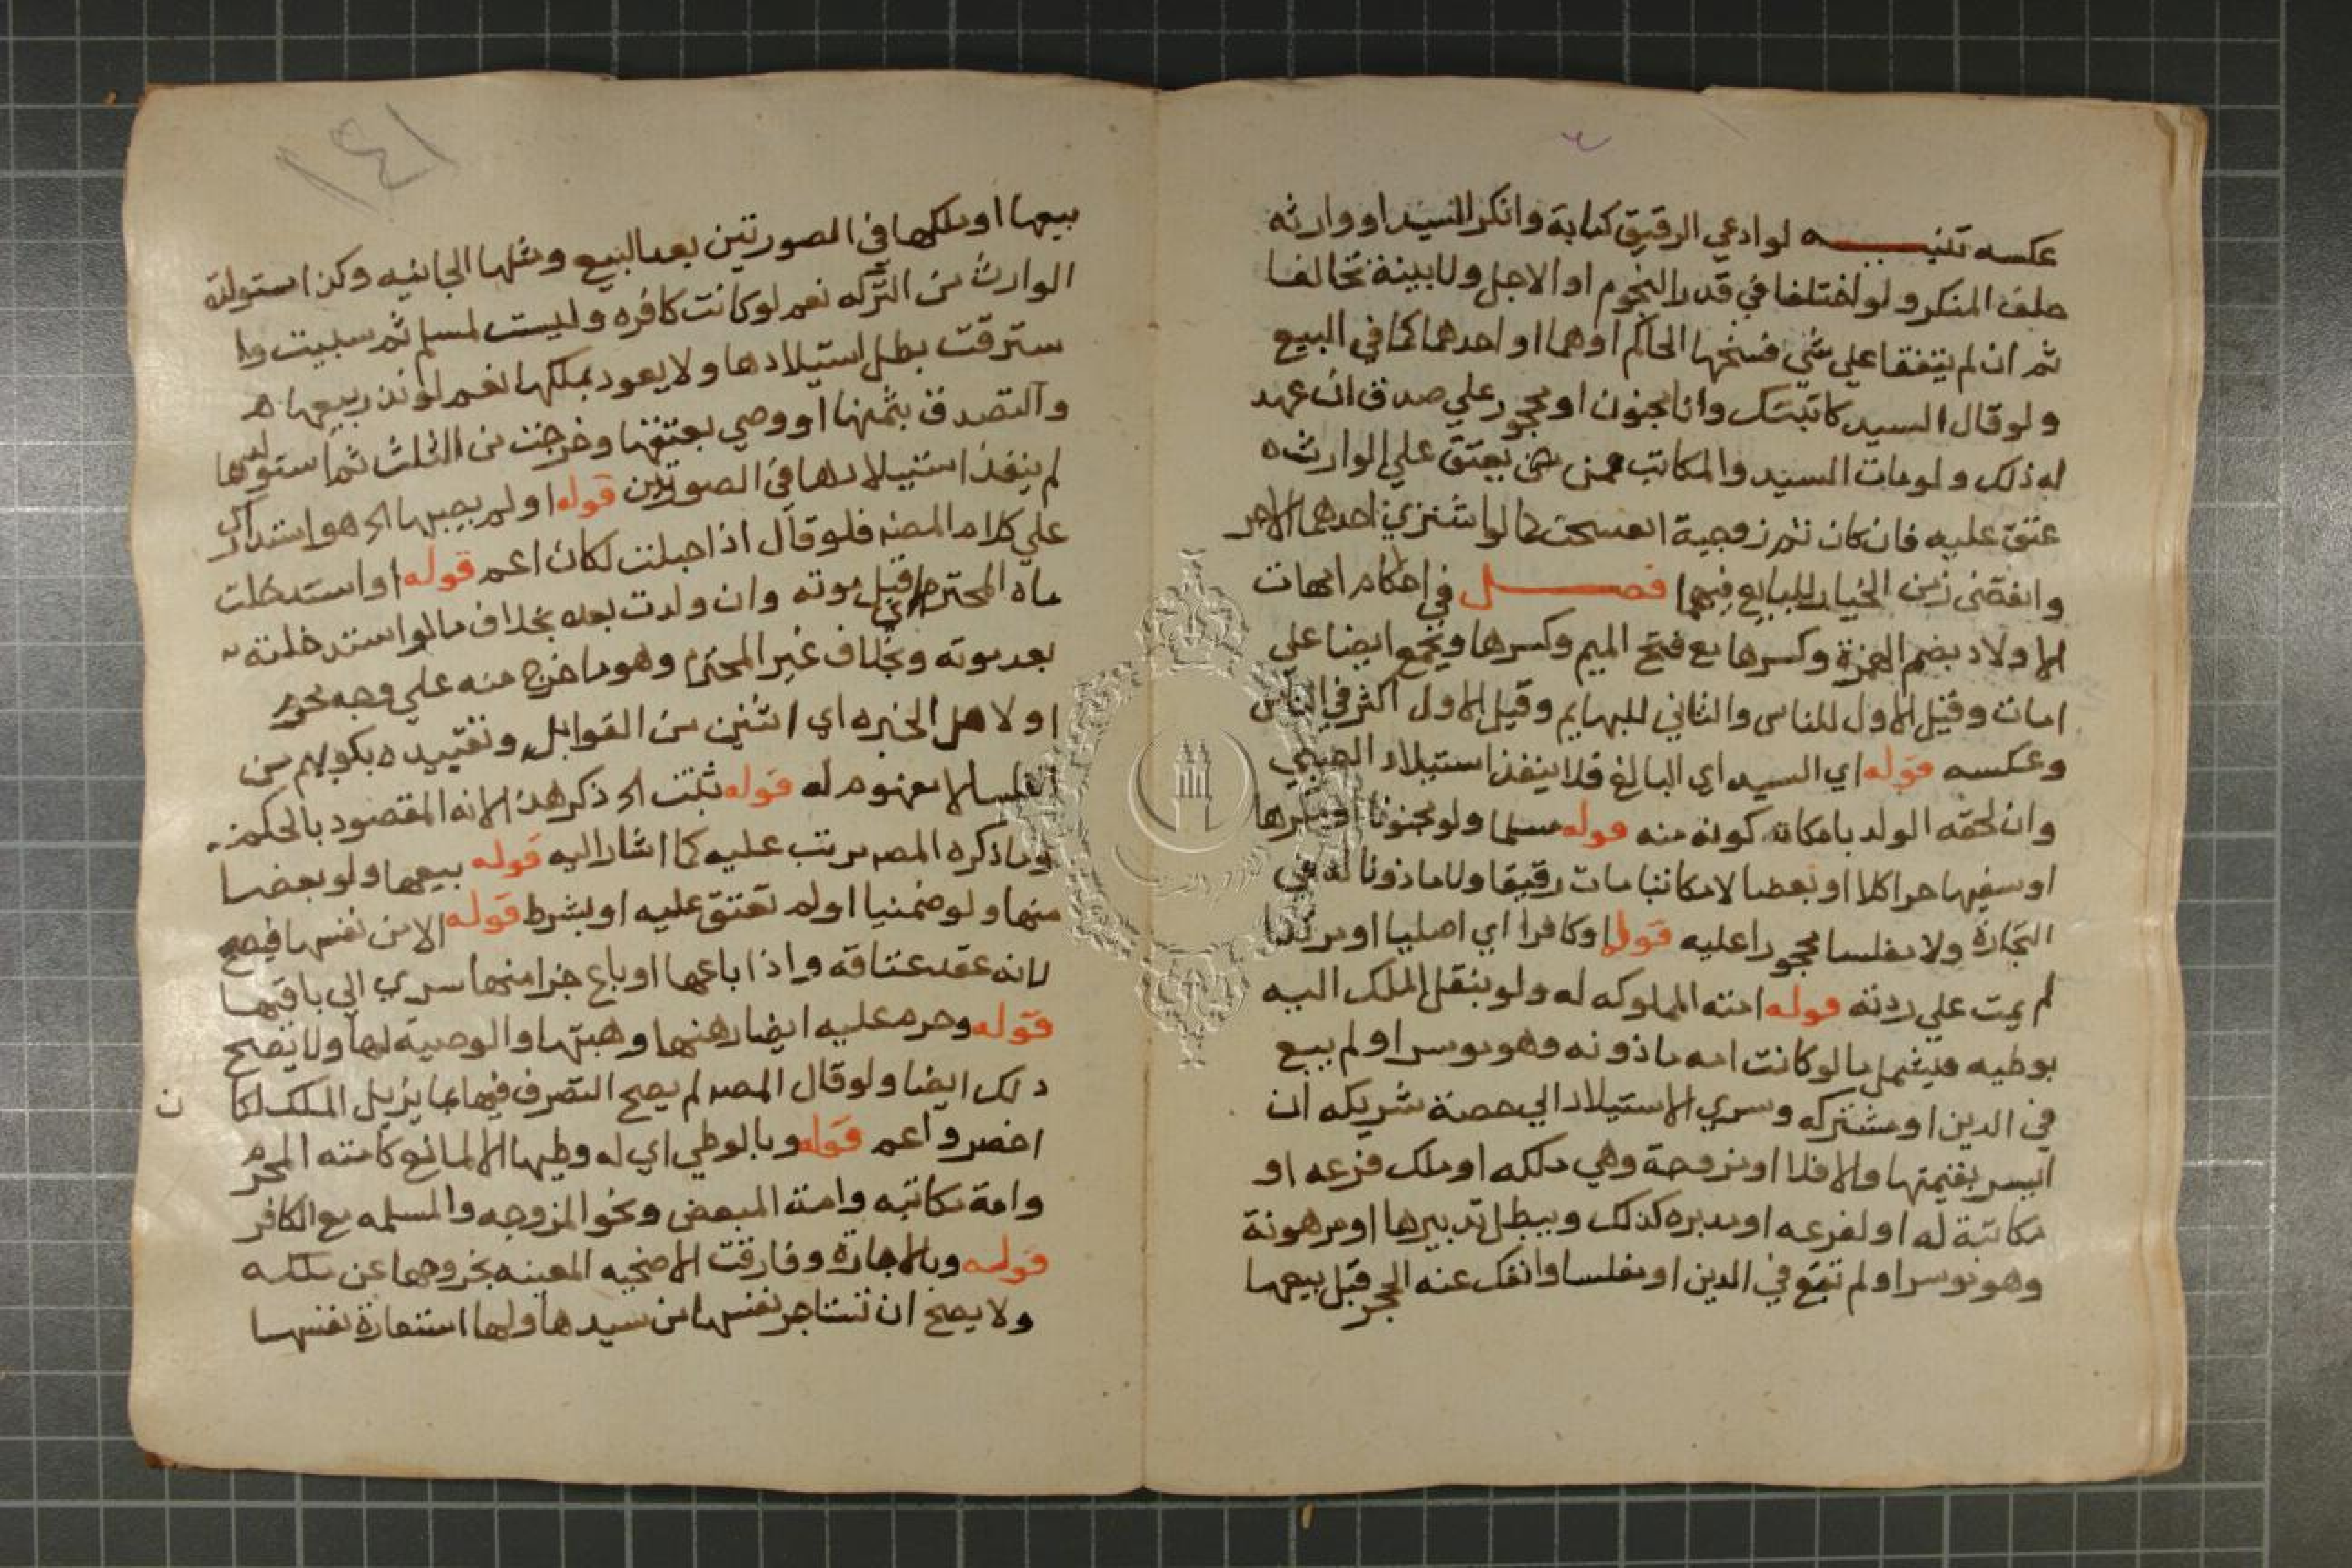 عكسه تنبيه لو ادعي الرقيق كتابة وانكر السيد او وارثه
حلف المنكر ولو اختلفا في قدر النجوم او الاجل ولا بينة تحالفا
ثم ان لم يتفقا علي شي فسخها الحاكم او هما او احدهما كما في البيع
ولو قال السيد كاتبتك وانا مجنون او محجور علي صدق ان عهد
له ذلك ولو مات السيد والمكاتب ممن يعتق علي الوارث
عتق عليه فان كان ثم زوجية انفسخت كما لو اشتري احدهما الاخر
وانقضي زمن الخيار للبايع فيهما فصل في احكام امهات
الاولاد بضم الهمزة وكسرها مع فتح الميم وكسرها ويجمع ايضا علي
امات وقيل الاول للناس والثاني للبهايم وقيل الاول اكثر في الناس
وعكسه قوله اي السيد اي البالغ فلا ينفذ استيلاد الصبي
وان لحقه الولد بامكان كونه منه قوله مسلما ولو مجنونا او مكرها
او سفيها حرا كلا او بعضا لا مكاتبا مات رقيقا ولا ماذونا له في
التجارة ولا مفلسا محجورا عليه قوله او كافرا اي اصليا او مرتدا
لم يمت علي ردته قوله امته المملوكه له ولو بنقل الملك اليه
بوطيه فيشمل ما لو كانت امه ماذونه وهو موسر او لم يبع
في الدين او مشتركه وسري الاستيلاد الي حصة شريكه ان
ايسر بقيمتها والا فلا او مزوجة وهي ملكه او ملك فرعه او
مكاتبة له او لفرعه او مدبره كذلك ويبطل تدبيرها او مرهونة
وهو موسر او لم تبع في الدين او مفلسا وانفك عنه الحجر قبل بيعها
١٤١
بيعها او ملكها في الصورتين بعد البيع ومثلها الجانيه وكذا مستولدة
الوارث من التركه نعم لو كانت كافره وليست لمسلم ثم سبيت وا
سترقت بطل استيلادها ولا يعود بملكها نعم لو نذر بيعها
والتصدق بثمنها او وصي بعتقها وخرجت من الثلث ثم استولدها
لم ينفذ استيلادها في الصورتين قوله او لم يصبها الخ هو استدراك
علي كلام المصنف فلو قال اذا احبلت لكان اعم قوله او استدخلت
ماه المحترم اي قبل موته وان ولدت بعده بخلاف ما لو استدخلته
بعد موته وبخلاف غير المحترم وهو ما خرج منه علي وجه محرم
او لاهل الخبره اي اثنين من القوابل وتقييده بكونهم من
النسا لا مفهوم له قوله ثبتت الخ ذكر هذا لانه المقصود بالحكم
وما ذكره المصـ مرتب عليه كما اشار اليه قوله بيعها ولو بعضا
منها ولو ضمنيا او لم تعتق عليه او بشرط قوله الا من نفسها فيصح
لانه عقد عتاقه واذا باعها او باع جزا منها سري الي باقيها
قوله وحرم عليه ايضا رهنها وهبتها والوصية لها ولا يصح
ذلك ايضا ولو قال المصـ لم يصح التصرف فيها بما يزيل الملك لكا ن
اخصر واعم قوله وبالوطي اي له وطيها الا لمانع كامته المحرم
وامة مكاتبه وامة المبعض ونحو المزوجه والمسلمه مع الكافر
قوله وبالاجارة وفارقت الاضحيه المعينه بخروجها عن ملكه
ولا يصح ان تستاجر نفسها من سيدها ولها استعارة نفسها